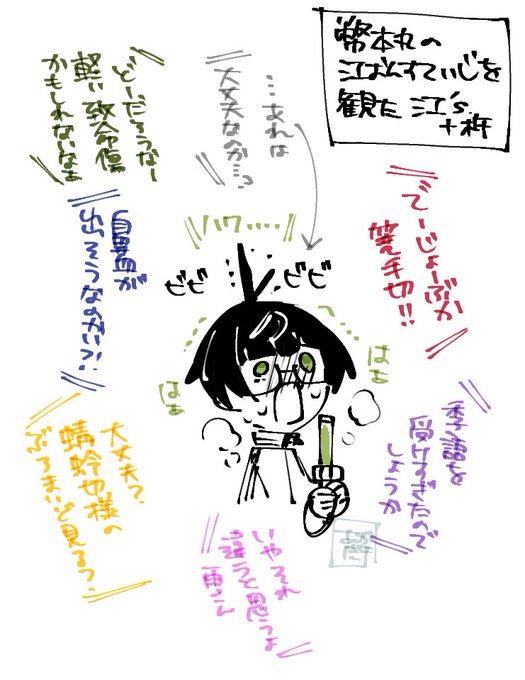 弊本丸の
江ばんすていじを
観た 江's
+斬
でーじょーぶか
篭手切!!
季語を
受けすぎたので
しょうか
…あれは
大丈夫なのか…っ
どーだろうなー
軽い致命傷
かもしれないなぁ
鼻血が
出そうなのかい?!
大丈夫?
蜻蛉切様の
ぶろまいど見るっ?
いやそれ
違うと思うよ
雨さん
ハワ……
ビビ
ビビ
はぁ
はぁ